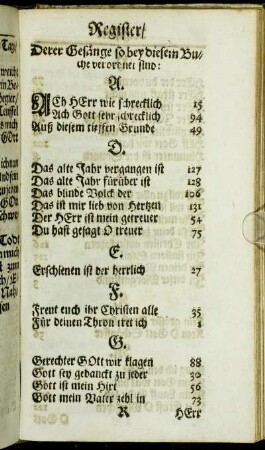 Register/
Derer Gesänge so bey diesem Bu-
che verordnet sind:
A.
ACh HErr wie schrecklich 15
Ach Gott sehr schrecklich 94
Auß diesem tieffen Grunde 49
D.
Das alte Jahr vergangen ist 127
Das alte Jahr fürüber ist 128
Das blinde Volck der 106
Das ist mir lieb von Hertzen 131
Der HErr ist mein getreuer 54
Du hast gesagt O treuer 75
E.
Erschienen ist der herrlich 27
F.
Freut euch ihr Christen alle 35
Für deinen Thron tret ich 1
G.
Gerechter GOtt wir klagen 88
Gott sey gedanckt zu jeder 30
Gott ist mein Hirt 56
Gott mein Vater zehl in 73
R HErr